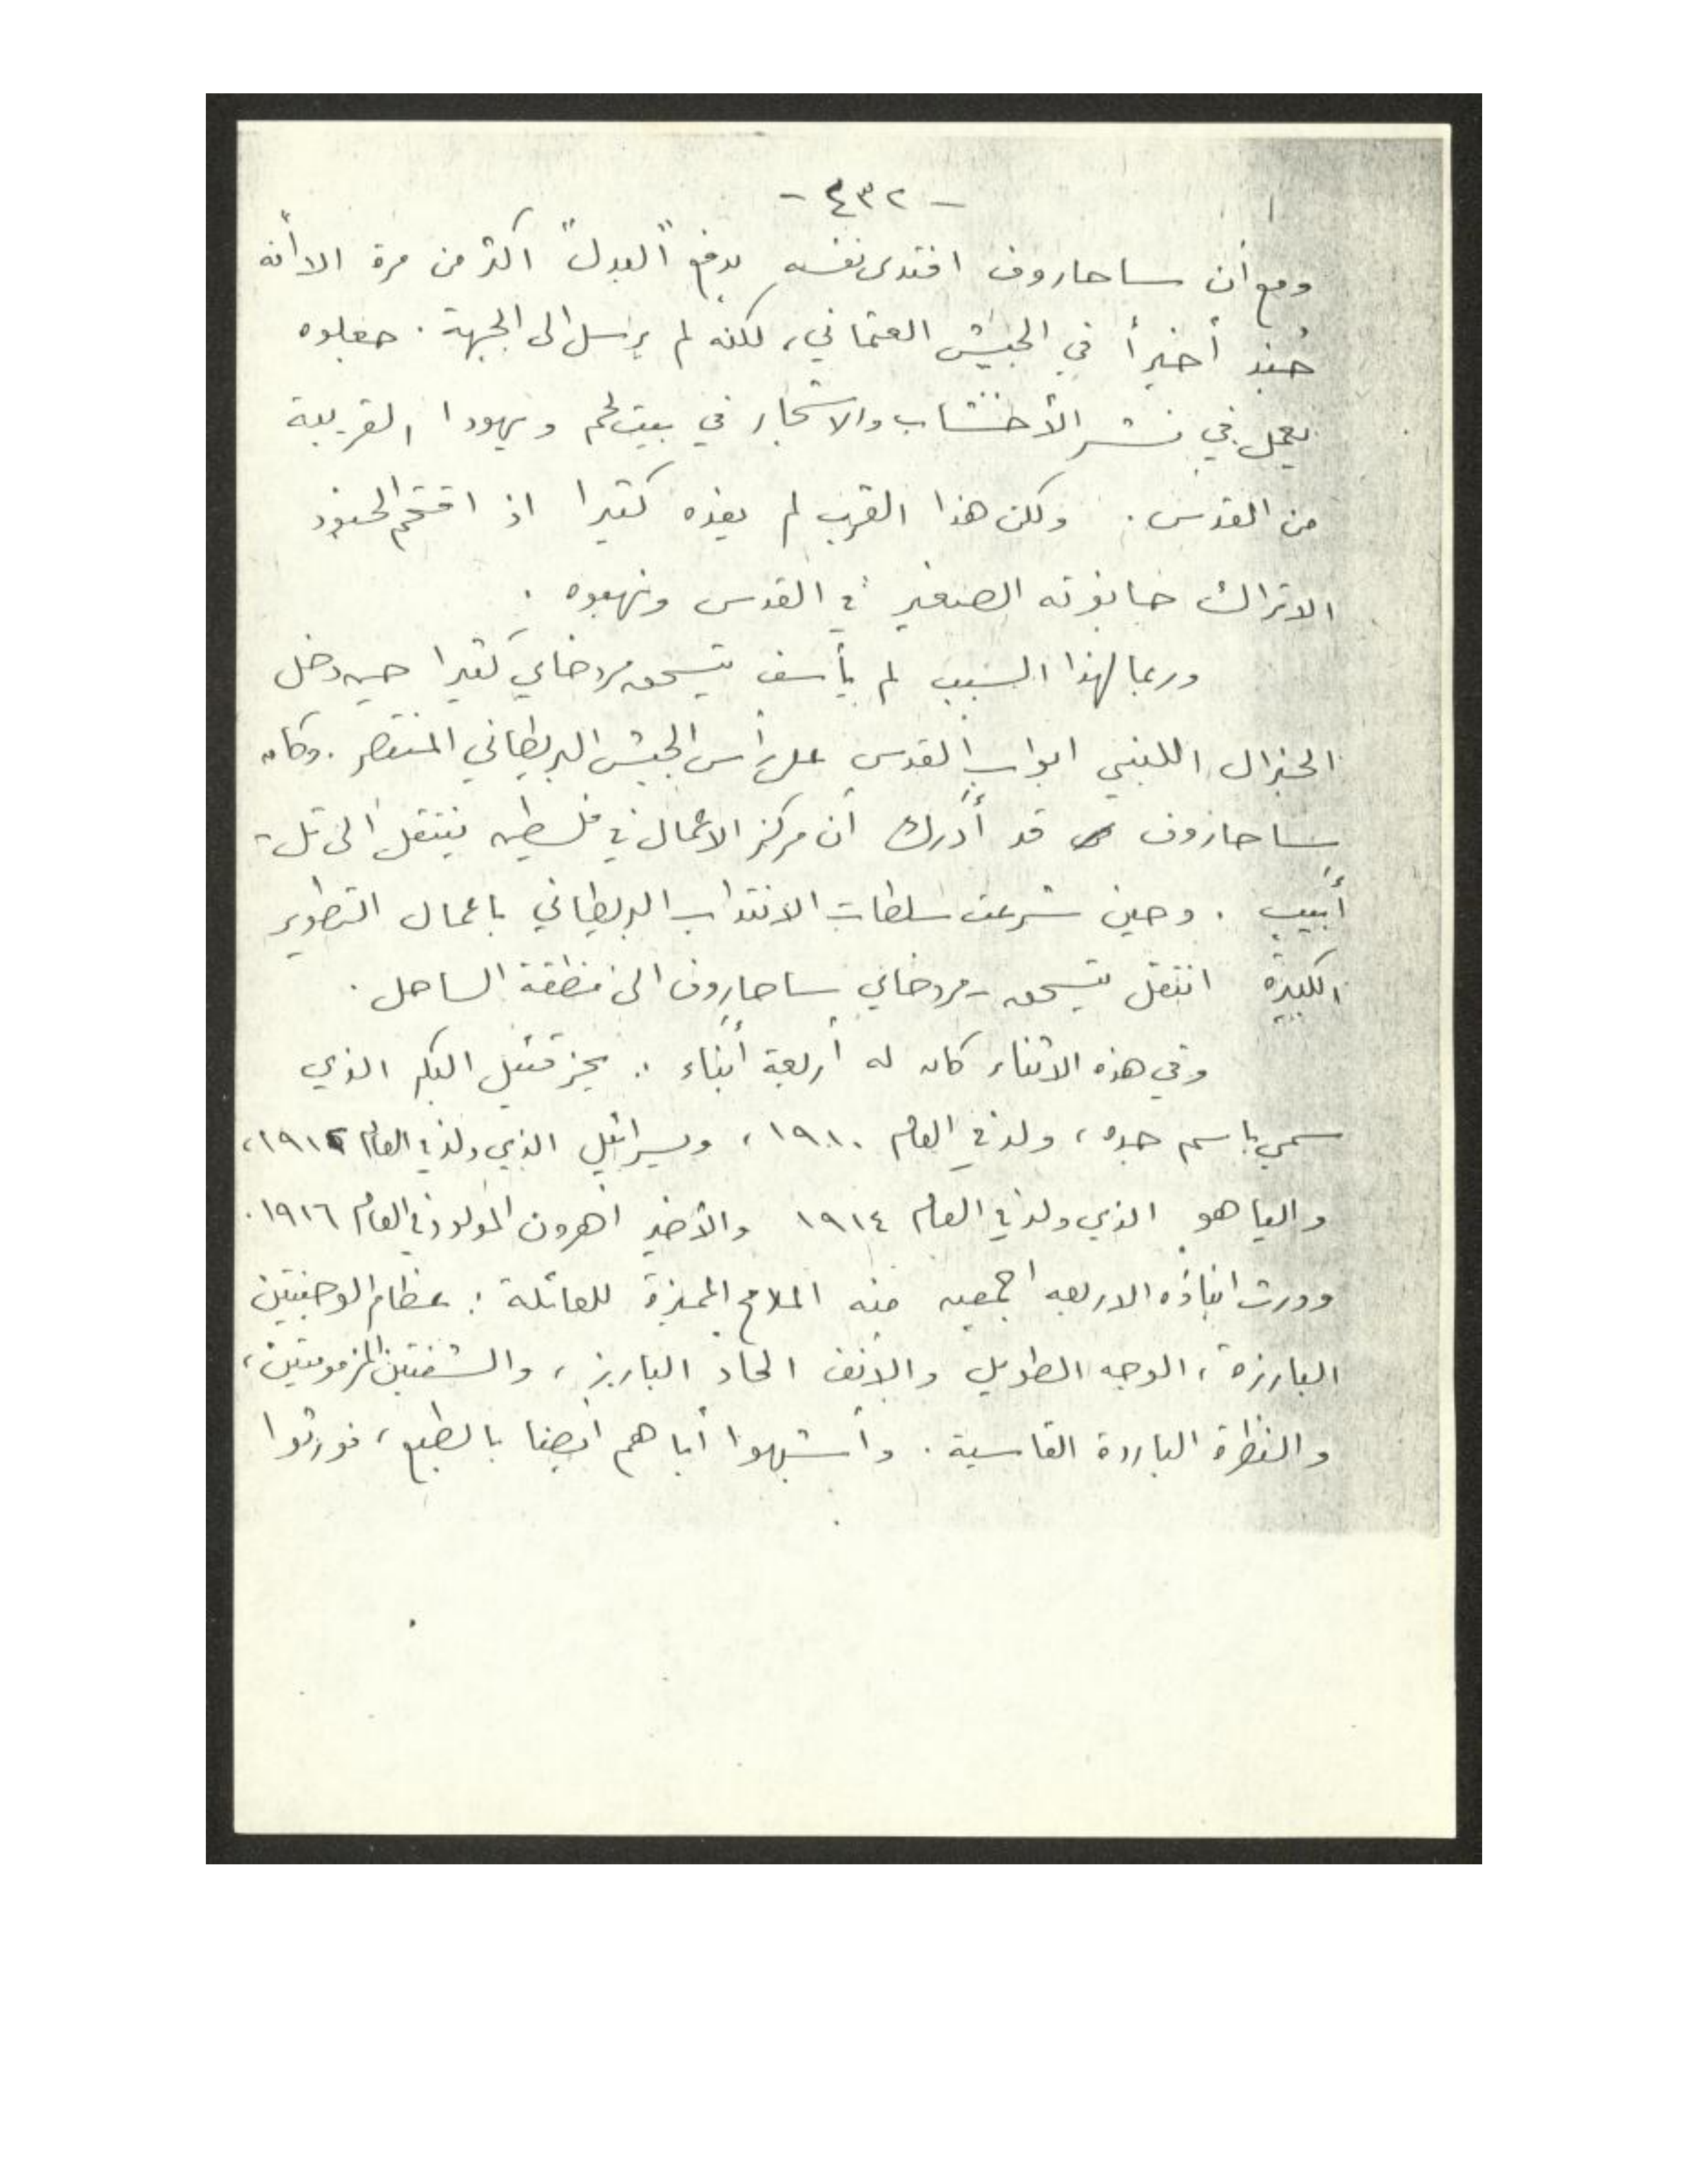 - ٤٣٢ -
ومع أن ساحاروف افتدى نفسه بدفع "البدل" اكثر من مرة الا أنه
جُند أخيراً في الجيش العثماني، لكنه لم يرسل الى الجبهة. جعلوه
يعمل في نشر الأخشاب والاشجار في بيت لحم ويهودا القريبة
من القدس. ولكن هذا القرب لم يفده كثيرا اذ اقتحم الجنود
الاتراك حانوته الصغير في القدس ونهبوه.
وربما لهذا السبب لم يأسف يتسحق مردخاي كثيرا حين دخل
الجنرال اللنبي ابواب القدس على رأس الجيش البريطاني المنتصر. وكان
ساحاروف قد أدرك أن مركز الاعمال في فلسطين ينتقل الى تل -
أبيب. وحين شرعت سلطات الانتداب البريطاني باعمال التطوير
الكبيرة انتقل يتسحق - مردخاي ساحاروف الى منطقة الساحل.
وفي هذه الاثناء كان له أربعة أبناء: يحزقئيل البكر الذي
سمي باسم جده، ولد في العام ١٩١٠، ويسرائيل الذي ولد في العام ١٩١٢،
والياهو الذي ولد في العام ١٩١٤ والأخير اهرون المولود في العام ١٩١٦.
وورث ابناؤه الاربعه اجمعين منه الملامح المميزة للعائلة: عظام الوجنتين
البارزة، الوجه الطويل والأنف الحاد البارز، والشفتين المزمومتين،
والنظرة الباردة القاسية. وأشبهوا أباهم ايضا بالطبع، فورثوا